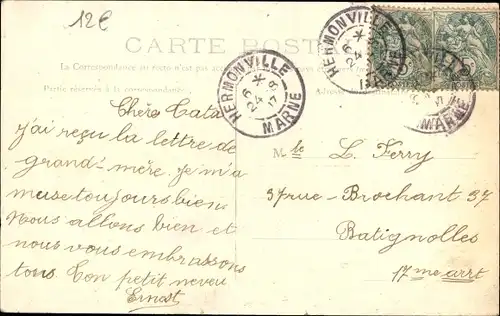 12€
CARTE POSTALE
La Correspondance au recto n'est pas
Partie réservée à la correspondance
HERMONVILLE
24 - 6
MARNE
HERMONVILLE
MARNE
Chère Tata
j'ai reçu la lettre de
grand-mère. Je m'a
muse toujours bien.
Nous allons bien et
nous vous embrassons
tous. Ton petit neveu
Ernest
Mlle L. Ferry
37 rue Brochant 37
Batignolles
17me arrt